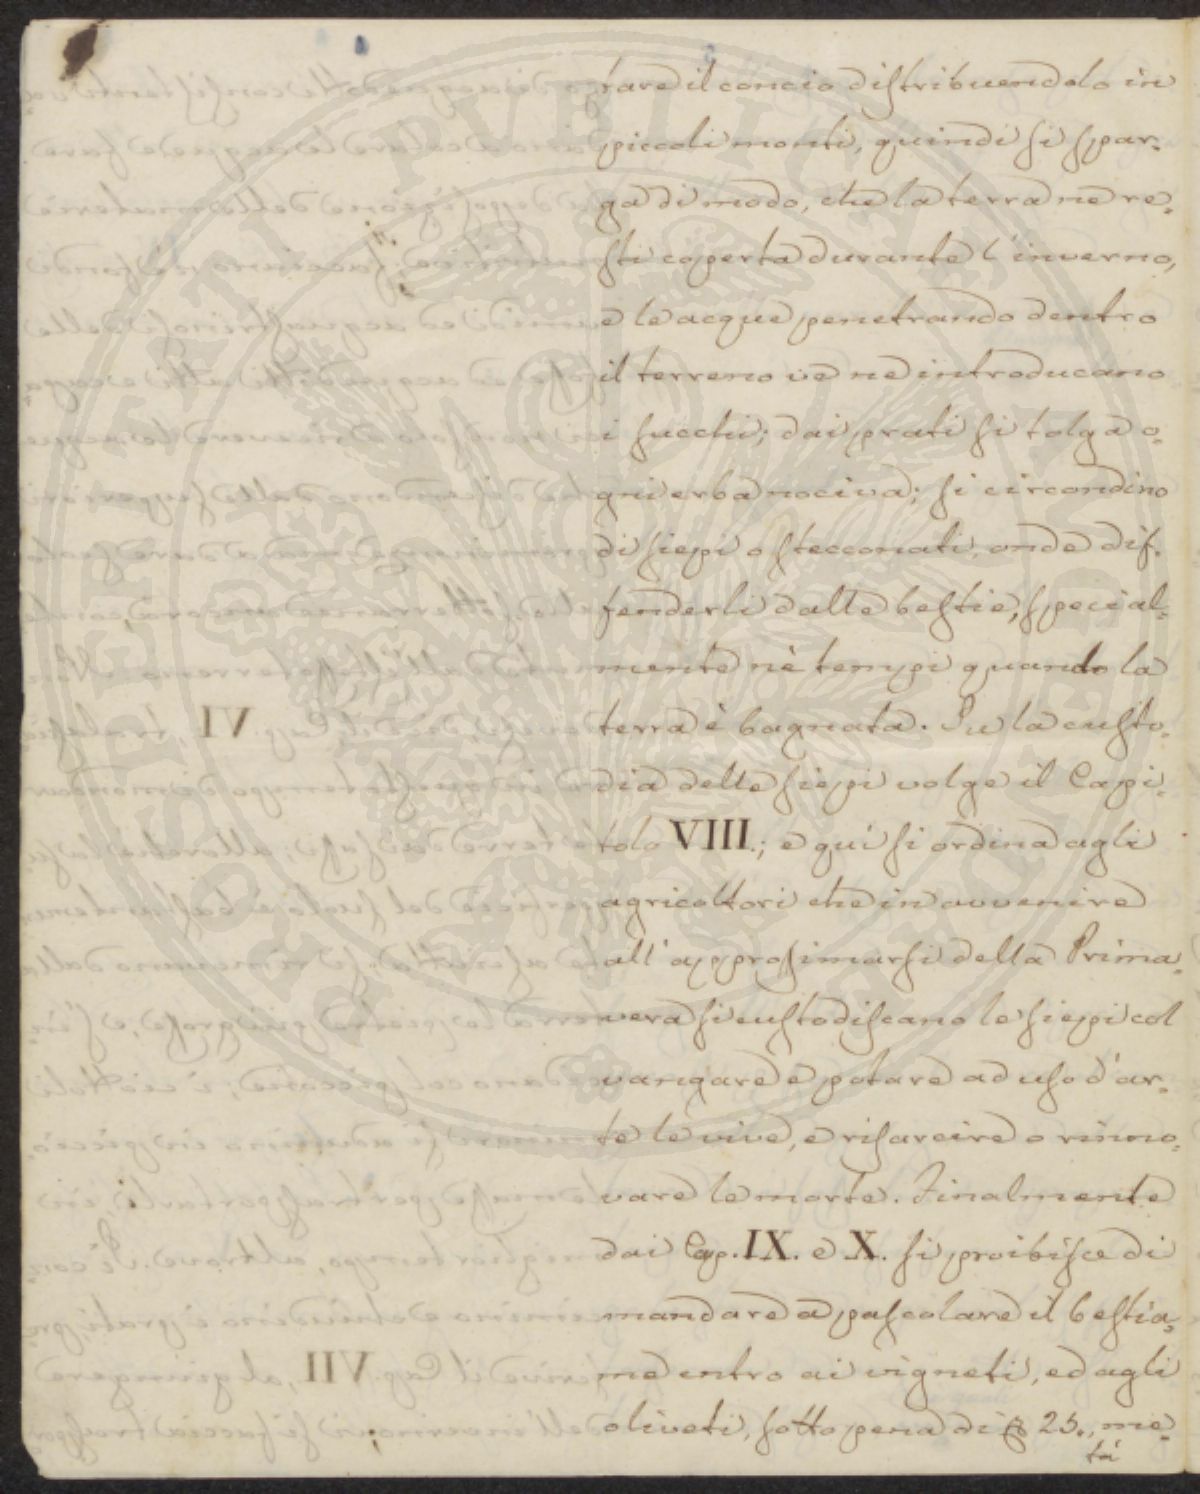 tare il concio distribuendolo in
piccoli monti, quindi si spar-
ga di modo, che la terra ne re-
sti coperta durante l'inverno,
e le acque penetrando dentro
il terreno ve ne introducano
i succhi; dai prati si tolga o-
gni erba nociva; si circondino
di siepi o stecconati, onde dif-
fenderli dalle bestie, special-
mente nè tempi quando la
terra è bagnata. Su la custo-
dia delle siepi volge il Capi-
tolo VIII.; e quí si ordina agli
agricoltori che in avvenire
all'approssimarsi della Prima-
vera si custodiscano le siepi col
vangare e potare ad uso d'ar-
te le vive, e risarcire o rinno-
vare le morte. Finalmente
dai Cap. IX. e X. si proibisce di
mandare a pascolare il bestia-
me entro ai vigneti, ed agli
oliveti, sotto pena di 25., me-
tá